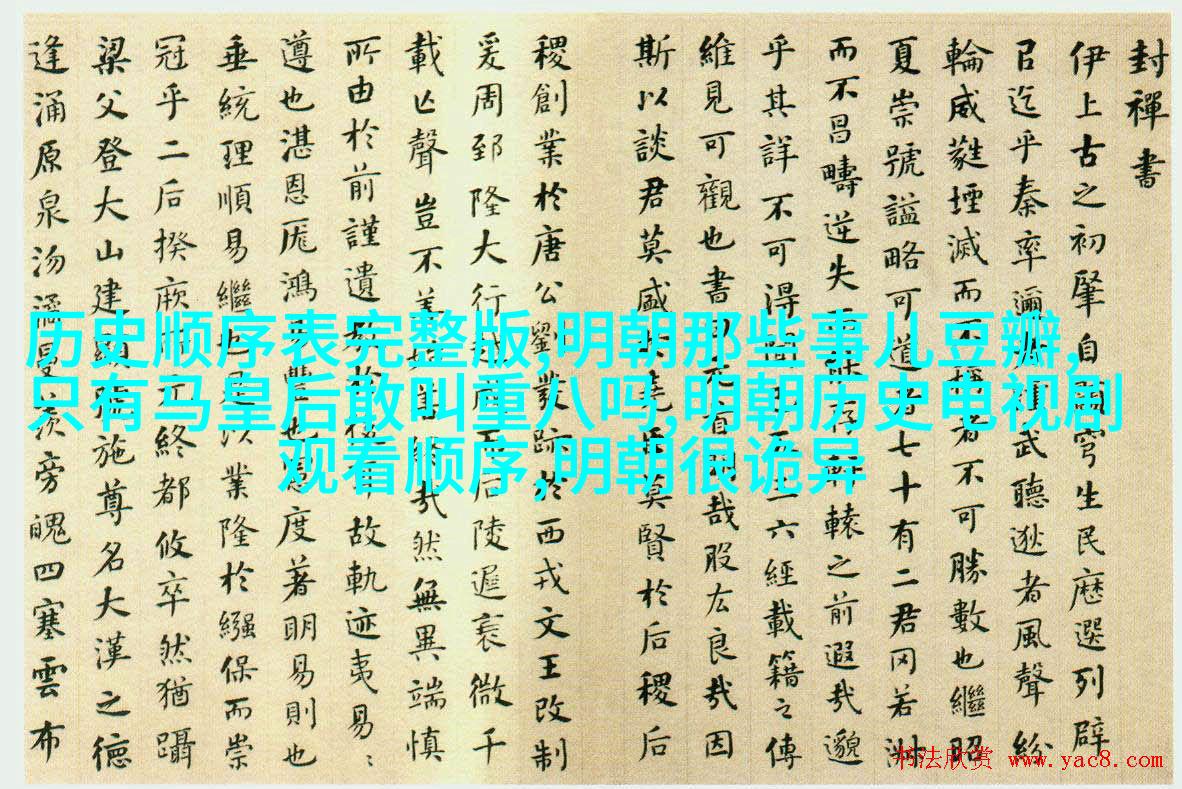 封禪書
伊上古之初肇自穹生民歷選列辟
㠯迄乎秦率邇武聽逖者風聲紛
輪威蕤堙滅而不稱者不可勝數也繼昭
夏崇號謚略可道者七十有二君罔若淑
而不昌疇逆失而存軒轅之前遐哉邈
乎其詳不可得聞五三六經載籍之傳
維見可觀也書曰哉股厷良哉因
斯以談君莫盛於堯臣莫賢於后稷后
稷創業於唐公劉發跡於西戎文王改制
爰周郅隆大行越成而后陵遲衰微千
載亡聲豈不善始善終哉然無異端慎
所由於前謹遺教於後耳故軌迹夷易〻
遵也湛恩厖鴻易豐也憲度著明易則也
垂統理順易繼也是以業隆於繈保而崇
冠乎二后揆厥所元終都攸卒然猶躡
梁父登大山建顯號施尊名大漢之德
逢涌原泉沕潏曼羨旁魄四塞雲布
历史顺序表完整版,明朝那些事儿豆瓣,
只有马皇后敢叫重八吗,明朝历史电视剧
观看顺序,明朝很诡异
书法欣赏 www.yac8.com